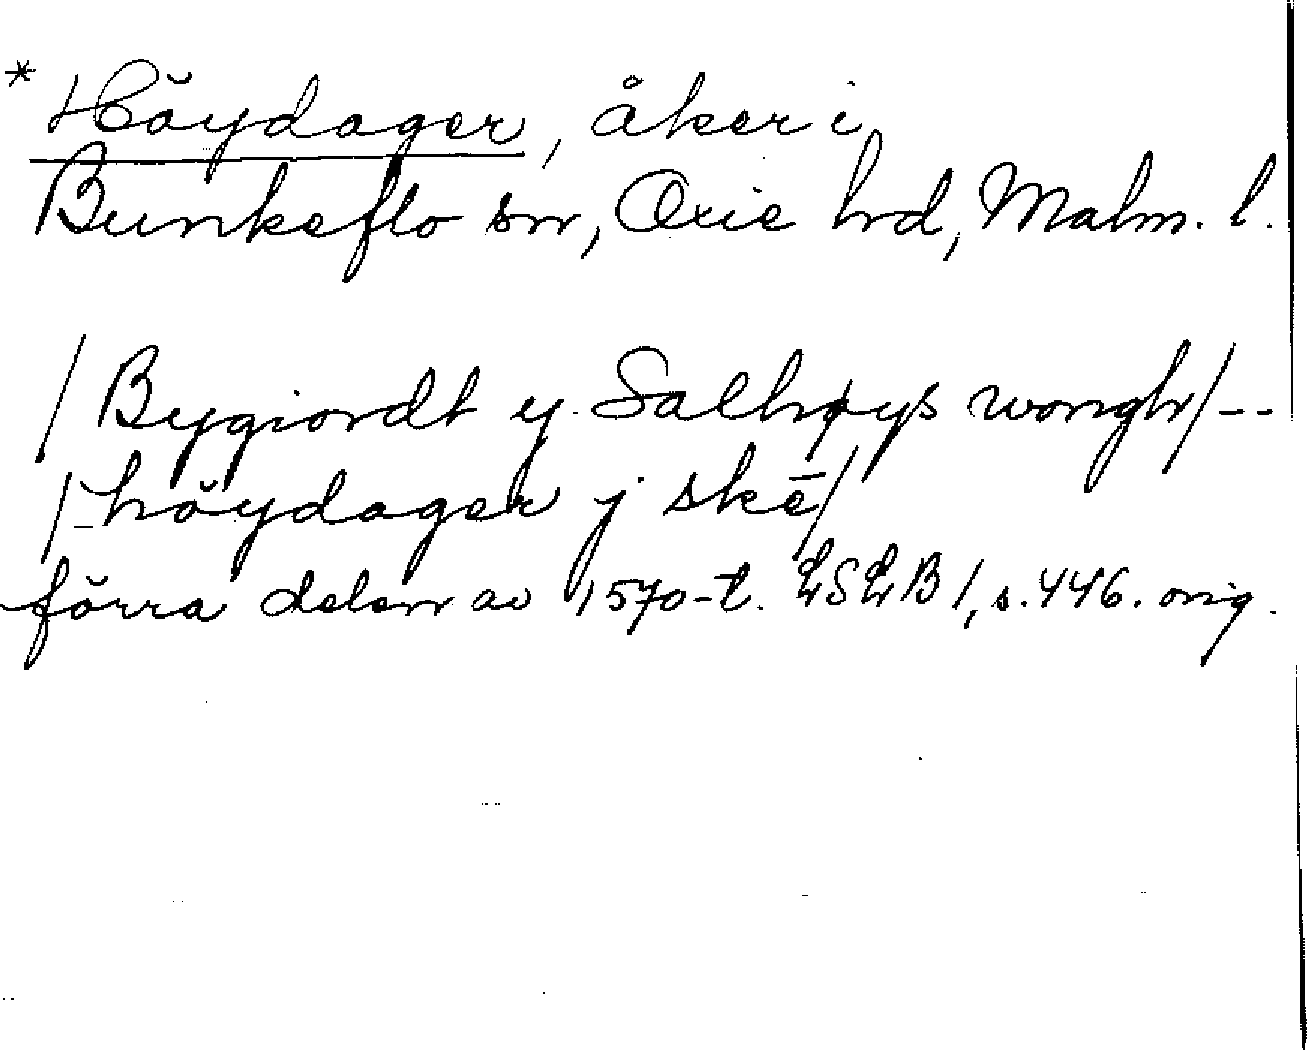 * Höydager, åker i
Bunkeflo sn, Oxie hd, Malm. l.
/Bygiordt y Salhøys wongh/--
/-höydager j skē/
förra delen av 1570-t. LSLB 1, s. 446. orig.